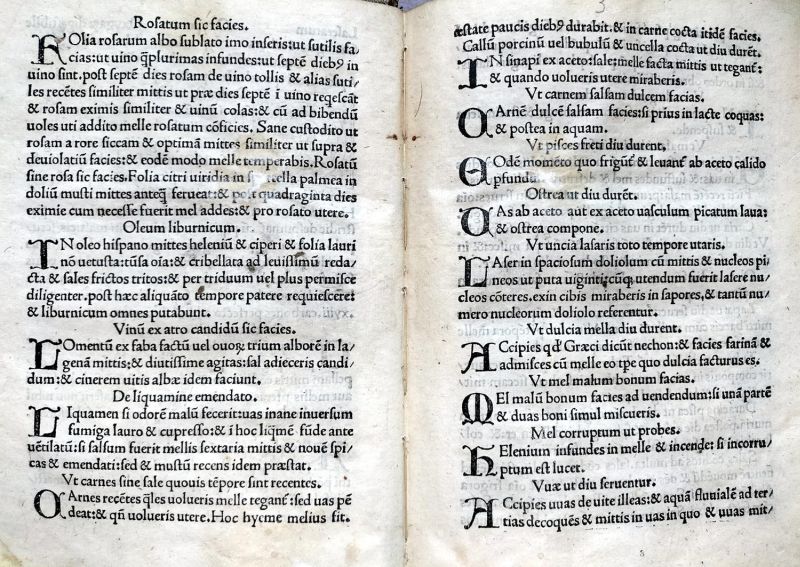 Rosatum sic facies.
FOlia rosarum albo sublato imo inseris: ut sutilis fa/
cias: ut uino q̃plurimas infundes: ut septẽ dieb9 in
uino sint. post septẽ dies rosam de uino tollis & alias suti/
les recẽtes similiter mittis ut præ dies septẽ ĩ uino reqescãt
& rosam eximis similiter & uinũ colas: & cũ ad bibendũ
uoles uti addito melle rosatum cõficies. Sane custodito ut
rosam a rore siccam & optimã mittes similiter ut supra &
deuiolatiũ facies: & eodẽ modo melle temperabis. Rosatũ
sine rosa sic facies. Folia citri uiridia in sportella palmea in
doliũ musti mittes anteq̃ ferueat: & post quadraginta dies
eximie cum necesse fuerit mel addes: & pro rosato utere.
Oleum liburnicum.
IN oleo hispano mittes heleniũ & ciperi & folia lauri
nõ uetusta: tũsa oĩa: & cribellata ad leuissimũ reda/
cta & sales frictos tritos: & per triduum uel plus permisce
diligenter. post hæc aliquãto tempore patere requiescere:
& liburnicum omnes putabunt.
Vinũ ex atro candidũ sic facies.
LOmentũ ex faba factũ uel ouoꝝ trium alborẽ in la/
genã mittis: & diutissime agitas: sal adieceris candi/
dum: & cinerem uitis albæ idem faciunt.
De liquamine emendato.
LIquamen si odorẽ malũ fecerit: uas inane inuersum
fumiga lauro & cupresso: & ĩ hoc liq̃mẽ fũde ante
uẽtilatũ: si salsum fuerit mellis sextaria mittis & nouẽ spi/
cas & emendasti: sed & mustũ recens idem præstat.
Vt carnes sine sale quouis tẽpore sint recentes.
CArnes recẽtes q̃les uolueris melle tegant᷑: sed uas pẽ
deat: & qñ uolueris utere. Hoc hyeme melius fit.
3
æstate paucis dieb9 durabit. & in carne cocta itidẽ facies.
Callũ porcinũ uel bubulũ & uncella cocta ut diu durẽt.
IN sinapi ex aceto: sale: melle facta mittis ut tegant᷑:
& quando uolueris utere miraberis.
Vt carnem salsam dulcem facias.
CArnẽ dulcẽ salsam facies: si prius in lacte coquas:
& postea in aquam.
Vt pisces freti diu durent.
EOdẽ momẽto quo frigũt᷑ & leuant᷑ ab aceto calido
ꝑfundũt᷑
Ostrea ut diu durẽt.
CAs ab aceto aut ex aceto uasculum picatum laua:
& ostrea compone.
Vt uncia lasaris toto tempore utaris.
LAser in spaciosum doliolum cũ mittis & nucleos pi/
neos ut puta uiginti: cũq̃ utendum fuerit lasere nu/
cleos cõteres. exin cibis miraberis in sapores, & tantũ nu/
mero nucleorum doliolo referentur.
Vt dulcia mella diu durent.
ACcipies qd̕ Græci dicũt nechon: & facies farinã &
admisces cũ melle eo tpe quo dulcia facturus es.
Vt mel malum bonum facias.
MEl malũ bonum facies ad uendendum: si unã partẽ
& duas boni simul miscueris.
Mel corruptum ut probes.
HElenium infundes in melle & incende: si incorru/
ptum est lucet.
Vuæ ut diu seruentur.
ACcipies uuas de uite illeas: & aquã fluuialẽ ad ter/
tias decoquẽs & mittis in uas in quo & uuas mit/